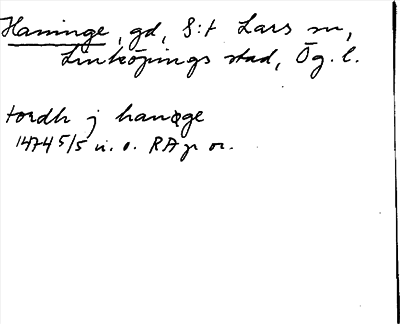 Haninge, gd, S:t Lars sn,
Linköpings stad, Ög. l.
tordh j hanæge
1474 5/5 u. o. RAp or.